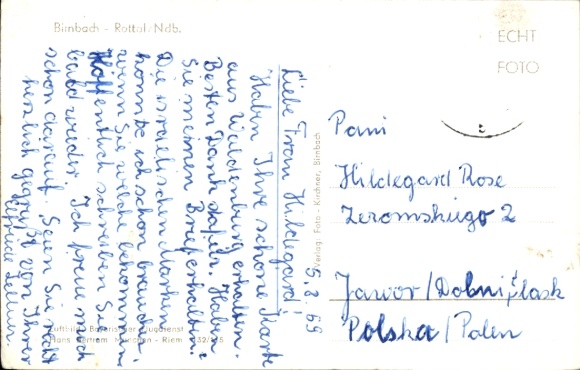 Birnbach - Rottal/Ndb.
ECHT
FOTO
5.8.69
Liebe Frau Hildegard!
Haben Ihre schöne Karte
aus Waldenburg erhalten.
Besten Dank dafür. Haben
Sie meinen Brief erhalten?
Die israelischen Marken
könnte ich schon brauchen,
wenn Sie welche bekommen.
Hoffentlich schreiben Sie
bald wieder. Ich freue mich
schon darauf. Seien Sie recht
herzlich gegrüßt von Ihrer
Verlag: Foto - Kirchner, Birnbach
Pani
Hildegard Rose
Zeromskiego 2
Jawor/Dolni Śląsk
Polska/Polen
Luftbild: Bayerischer Flugdienst
Hans Bertram München - Riem